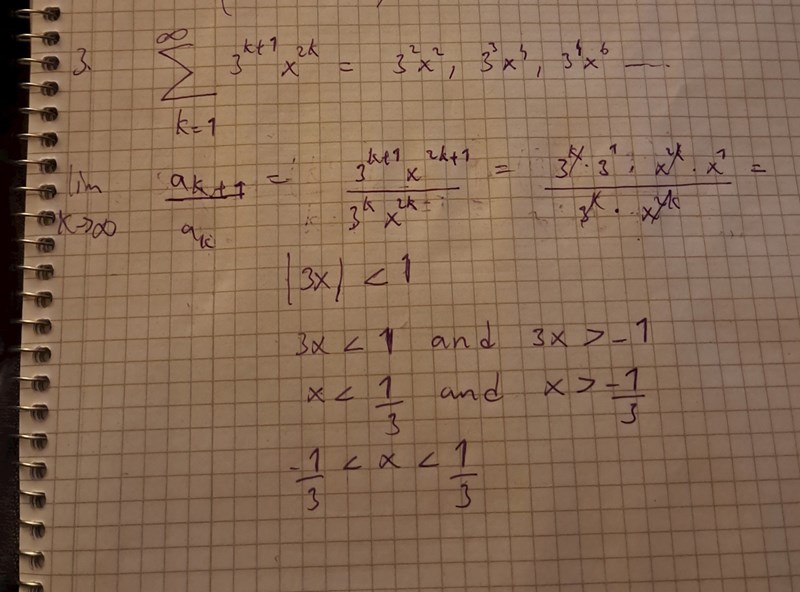 3. ∞∑k=1 3^{k+1} x^{2k} = 3^2x^2, 3^3x^4, 3^4x^6 ....
lim k→∞ a_{k+1}/a_k = 3^{k+1} x^{2k+1} / 3^k x^{2k} = 3^k · 3^1 · x^{2k} · x^1 / 3^k · x^{2k} =
|3x| < 1
3x < 1 and 3x > -1
x < 1/3 and x > -1/3
-1/3 < x < 1/3